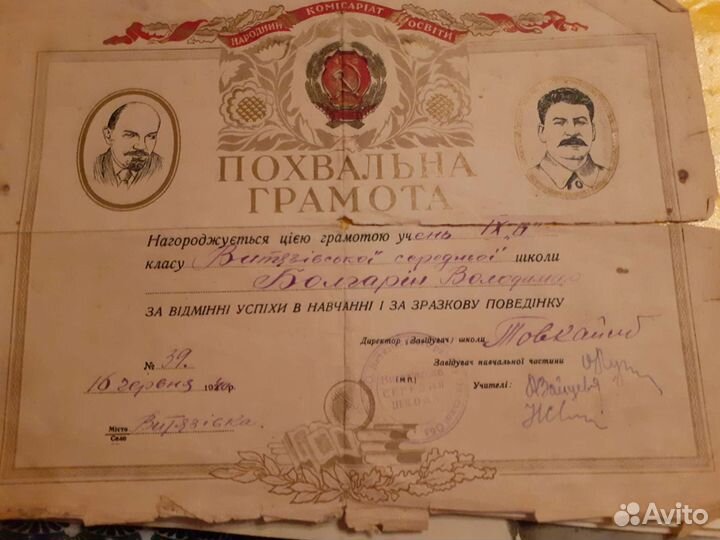 НАРОДНИЙ КОМІСАРІАТ ОСВІТИ
ПОХВАЛЬНА
ГРАМОТА
Нагороджується цією грамотою учень ІХ „Б"
класу Витязівської середньої школи
Болгарін Володимир
ЗА ВІДМІННІ УСПІХИ В НАВЧАННІ І ЗА ЗРАЗКОВУ ПОВЕДІНКУ
Директор (Завідувач) школи
№ 39.
Завідувач навчальної частини
16 червня 1940р.
(М П.)
Учителі: Зайцева
Місто
Село Витязівка.
Avito